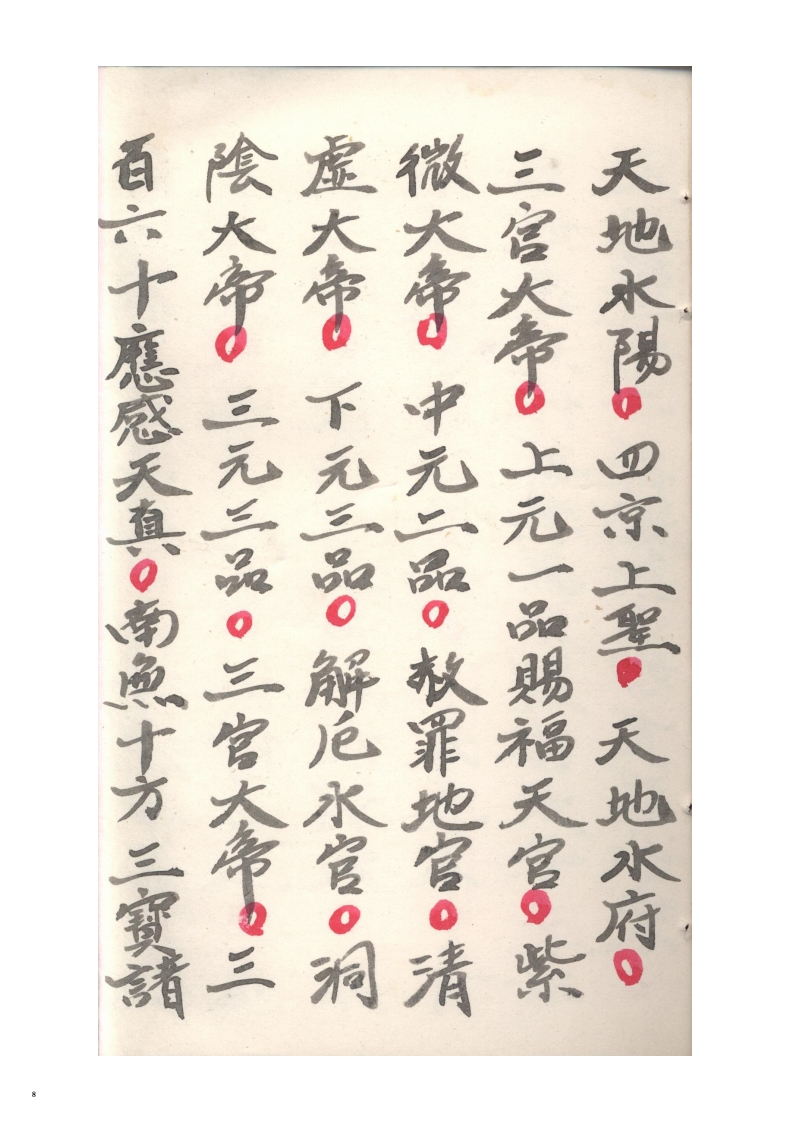 天地水陽○四京上聖○天地水府○
三官大帝○上元一品賜福天官○紫
微大帝○中元二品○赦罪地官○清
虛大帝○下元三品○解厄水官○洞
陰大帝○三元三品○三官大帝○三
百六十應感天真○南無十方三寶諸
8